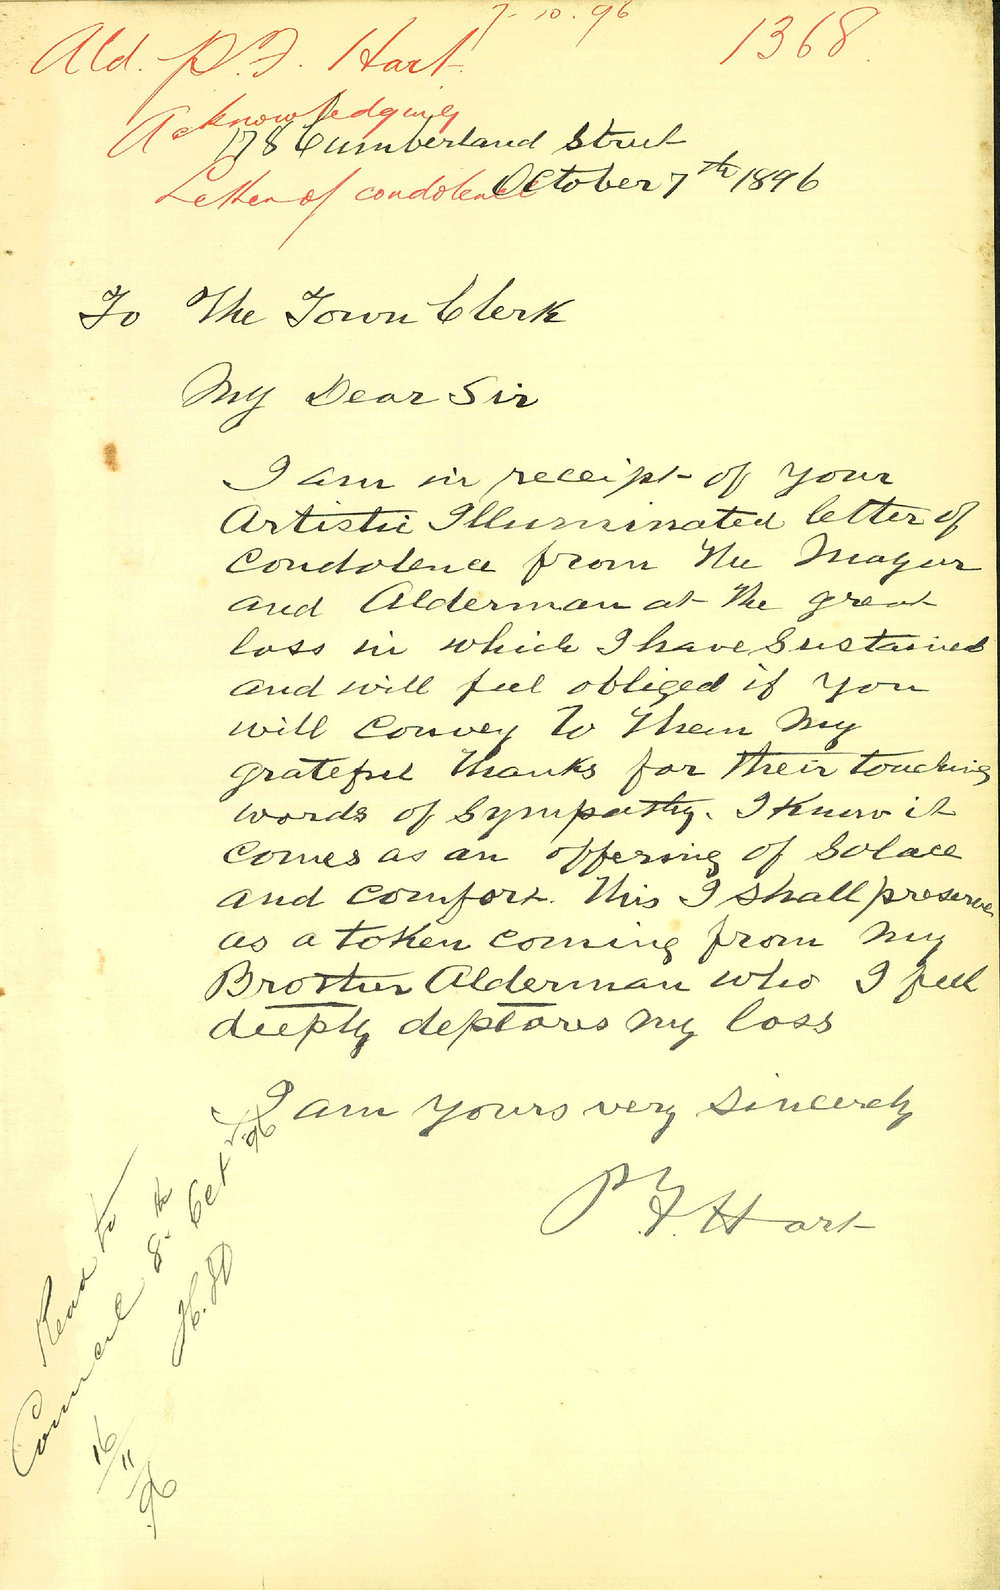 7-10-96
Ald. P. F. Hart
1368
Acknowledging
178 Cumberland Street
Letter of condolence
October 7th 1896
To The Town Clerk
My Dear Sir
I am in receipt of your
Artistic Illuminated letter of
condolence from the Mayor
and Alderman at the great
loss in which I have Sustained
and will feel obliged if you
will convey to them my
grateful thanks for their touching
words of Sympathy. I know it
comes as an offering of Solace
and comfort. This I shall preserve
as a token coming from my
Brother Alderman who I feel
deeply deplores my loss
I am yours very Sincerely
P. F. Hart
Read to
Council 8th Oct
96
16/11/96